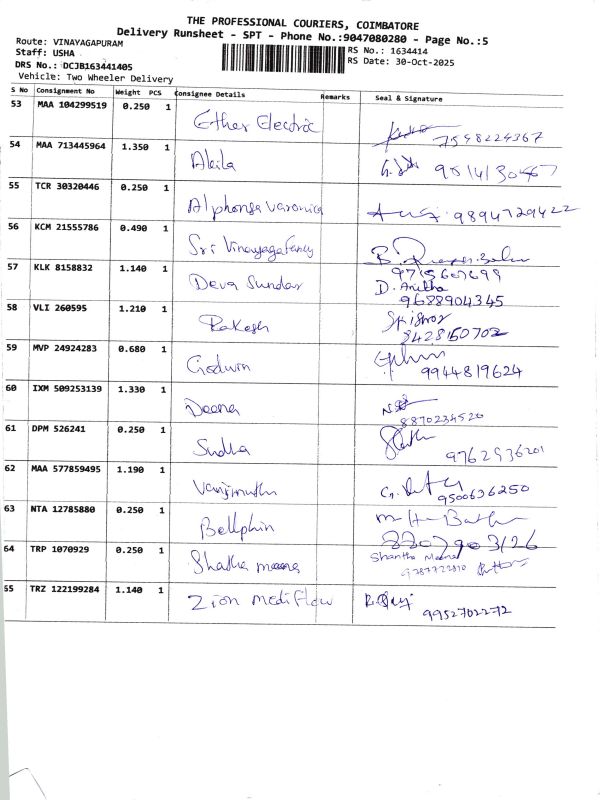 THE PROFESSIONAL COURIERS, COIMBATORE
Delivery Runsheet - SPT - Phone No.:9047080280 - Page No.:5
Route: VINAYAGAPURAM
RS No.: 1634414
Staff: USHA
RS Date: 30-Oct-2025
DRS No.: DCJB163441405
Vehicle: Two Wheeler Delivery
S No Consignment No Weight PCS Consignee Details Remarks Seal & Signature
53 MAA 104299519 0.250 1 Ether Electric 7548224367
54 MAA 713445964 1.350 1 Akila
55 TCR 30320446 0.250 1 Alphonsa varonica 9894729422
56 KCM 21555786 0.490 1 Sri Vinayaga fancy
57 KLK 8158832 1.140 1 Deva Sundar D. Anitha
9688904345
58 VLI 260595 1.210 1 Rakesh
8428150702
59 MVP 24924283 0.680 1 Godwin
9944819624
60 IXM 509253139 1.330 1 Deena
8870234526
61 DPM 526241 0.250 1 Sudha
9762936201
62 MAA 577859495 1.190 1 Vanjimuthu
9500636250
63 NTA 12785880 0.250 1 Bellphin
8807903126
64 TRP 1070929 0.250 1 Shatha meena Shantha Meena
65 TRZ 122199284 1.140 1 Zion mediflow
9952702272